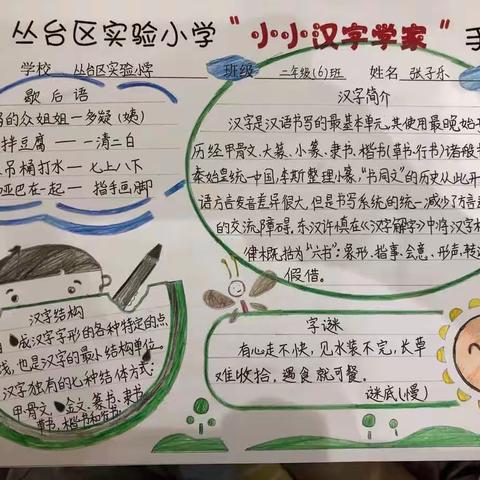 丛台区实验小学"小小汉字学家"手
学校 丛台区实验小学 班级 二年级(6)班 姓名 张子乐
歇后语
的众姐姐—多疑(姨)
拌豆腐——一清二白
吊桶打水—七上八下
哑巴在一起—指手画脚
汉字简介
汉字是汉语书写的最基本单元,其使用最晚始
历经甲骨文、大篆、小篆、隶书、楷书(草书·行书)诸般
秦始皇统一中国,李斯整理小篆,"书同文"的历史从此开
语方言发音差异很大,但是书写系统的统一减少了方言
的交流障碍,东汉许慎在《汉字解字》中将汉字
律概括为"六书":象形、指事、会意、形声、转
假借。
汉字结构
成汉字字形的各种特定的点
线,也是汉字的最小结构单位。
汉字独有的七种结体方式:
甲骨文、金文、篆书、隶书
草书、楷书和行书
字谜
有心走不快,见水装不完,长草
难收拾,遇食就可餐。
谜底(慢)